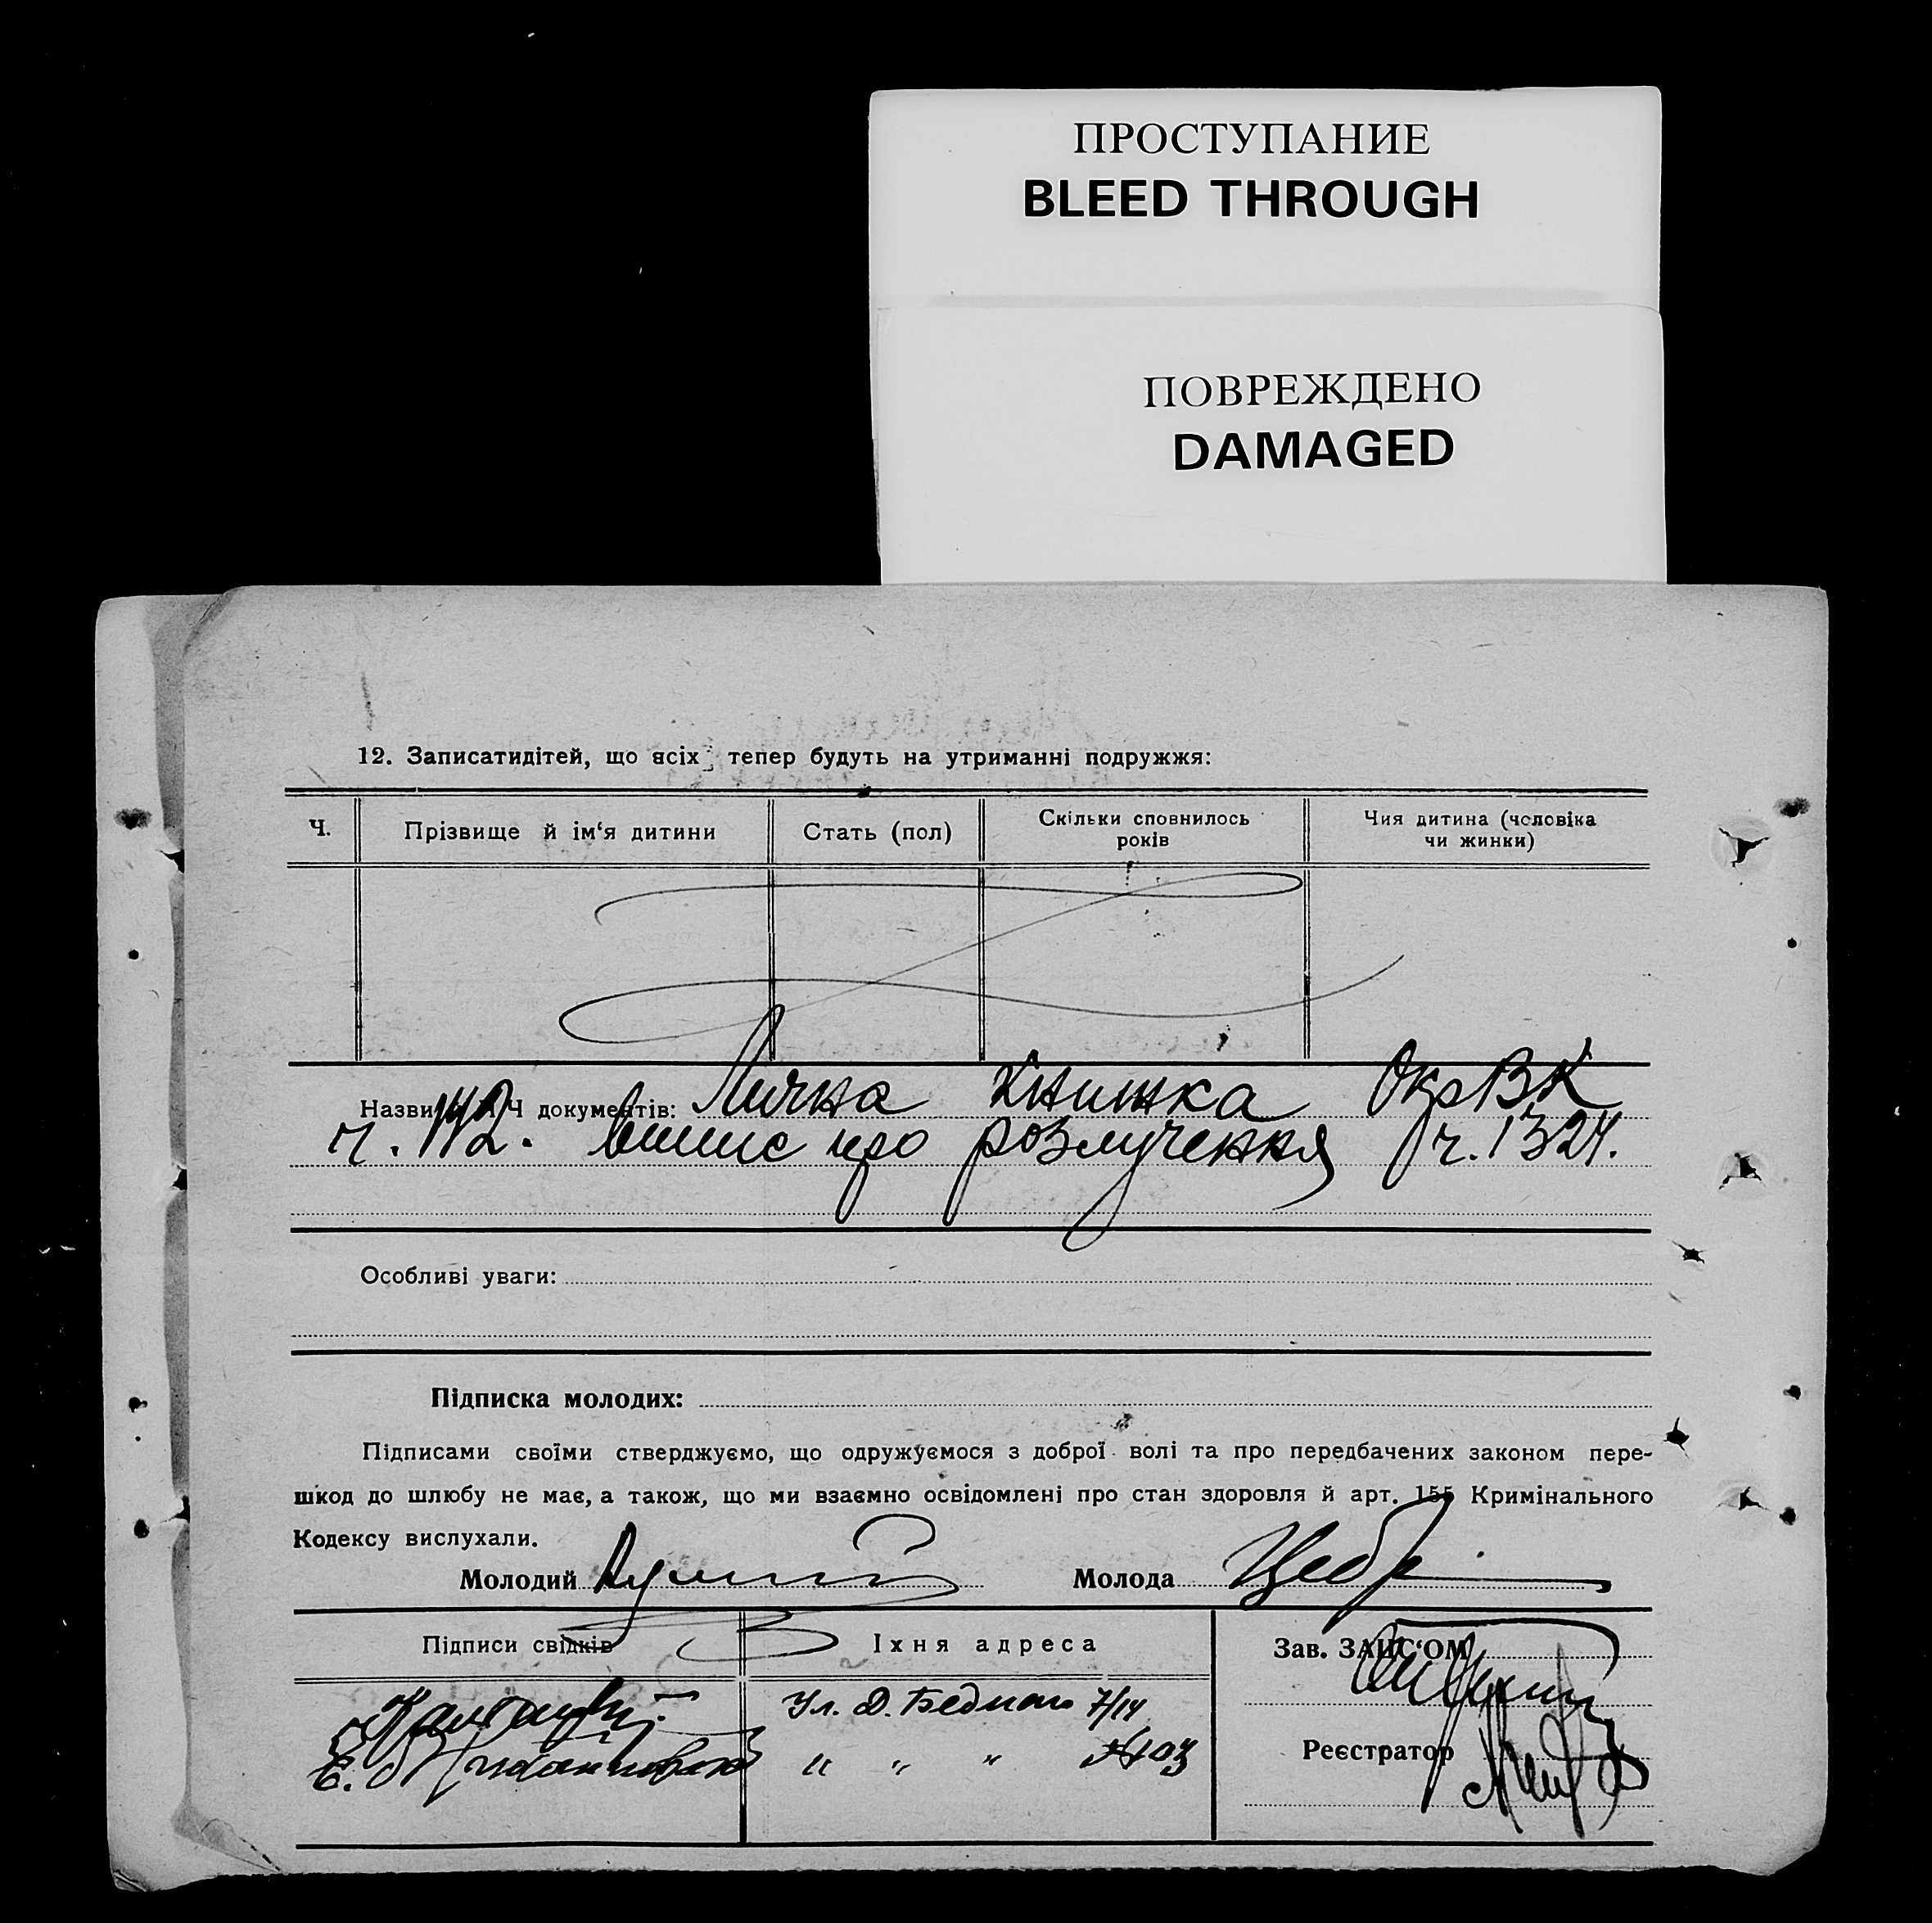 ПРОСТУПАНИЕ
BLEED THROUGH
ПОВРЕЖДЕНО
DAMAGED
12. Записатидітей, що всіх тепер будуть на утриманні подружжя:
Ч.
Прізвище й ім‘я дитини
Стать (пол)
Скільки сповнилось
років
Чия дитина (чоловіка
чи жинки)
Назви й Ч документів: Лична Книжка ОкрВК
ч. 112. Випис про розлучення ч. 1324.
Особливі уваги:
Підписка молодих:
Підписами своїми стверджуємо, що одружуємося з доброї волі та про передбачених законом пере-
шкод до шлюбу не має, а також, що ми взаємно освідомлені про стан здоровля й арт. 155 Кримінального
Кодексу вислухали.
Молодий
Молода
Підписи свідків
Їхня адреса
Зав. ЗАГС‘ОМ
Ул. Д. Бедного 7/14
Е.
" " "
Реєстратор